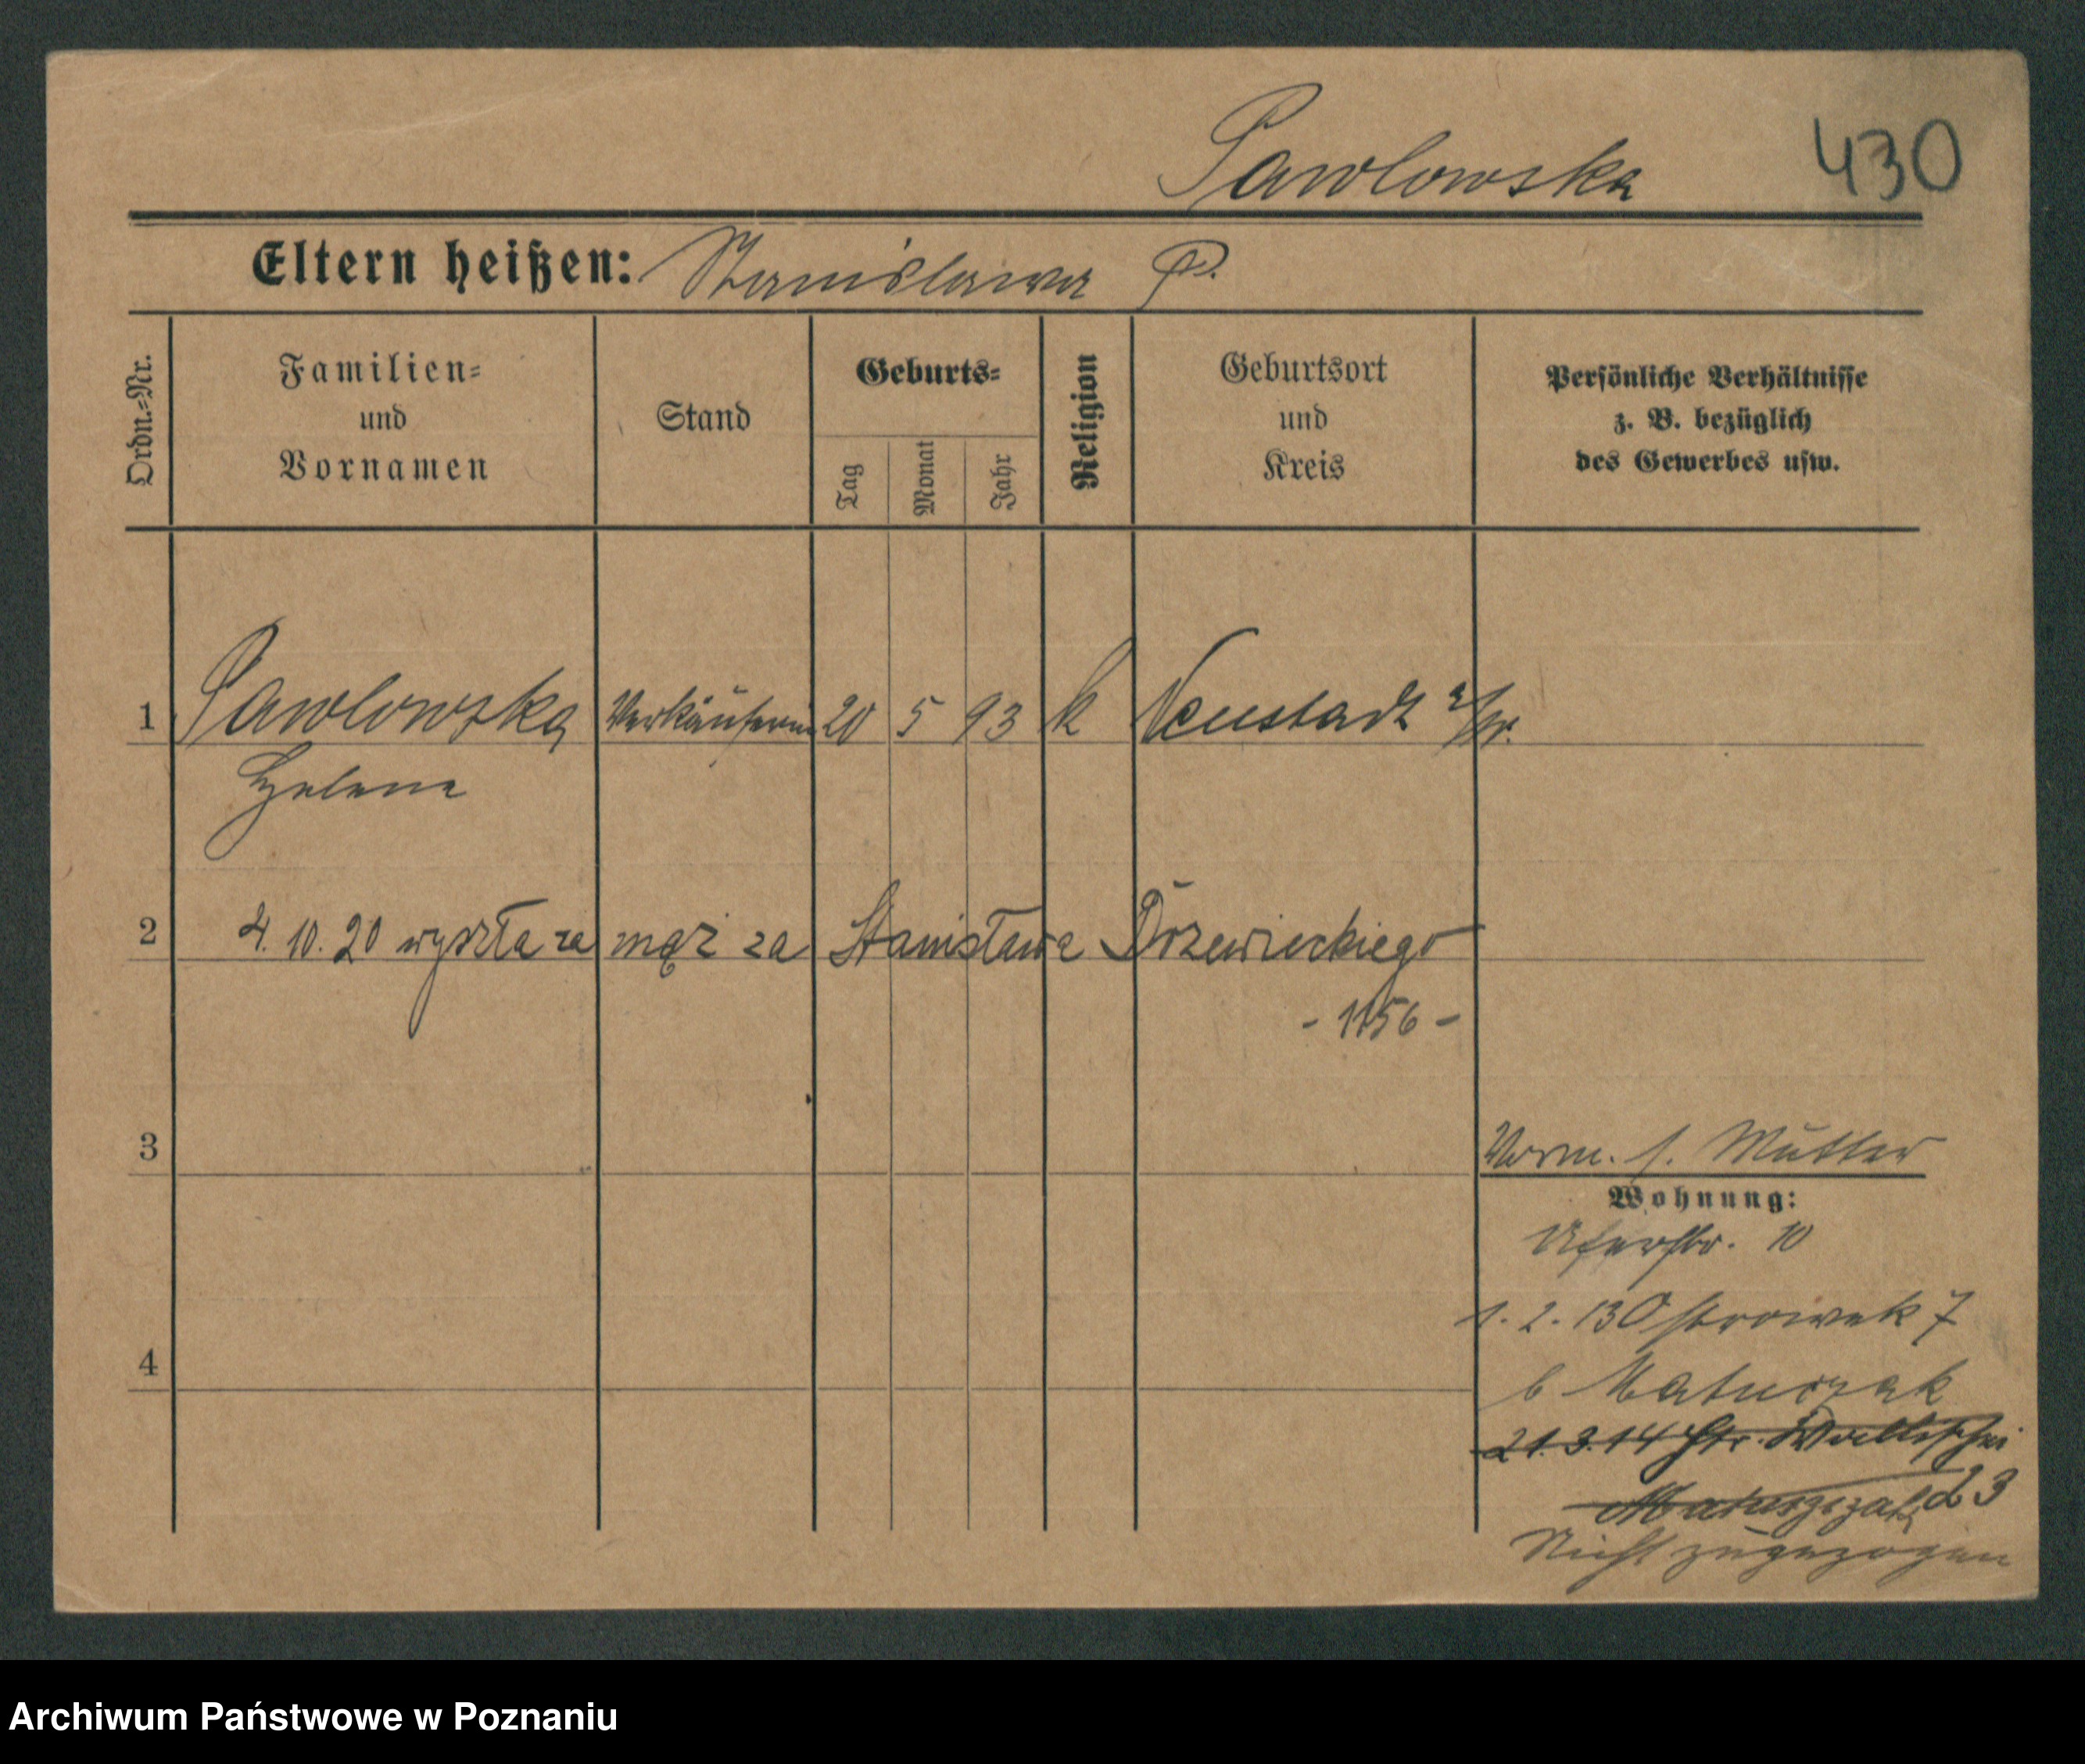 Pawlowska 430
Eltern heißen: Stanislawa P.
Ordn.-Nr.
Familien-
und
Vornamen
Stand
Geburts-
Tag
Monat
Jahr
Religion
Geburtsort
und
Kreis
Persönliche Verhältnisse
z. B. bezüglich
des Gewerbes usw.
1 Pawlowska Verkäuferin 20 5 93 k Neustadt a/W.
Helene
2 4. 10. 20 wyszła za mąż za Stanisława Drzewieckiego
- 1156 -
3
Vorm. s. Mutter
Wohnung:
Uferstr. 10
1. 2. 13 Ostrowek 7
4
b Matuszak
21.3.14 Wallischei
Matuszczak 3
Nicht zugezogen
Archiwum Państwowe w Poznaniu